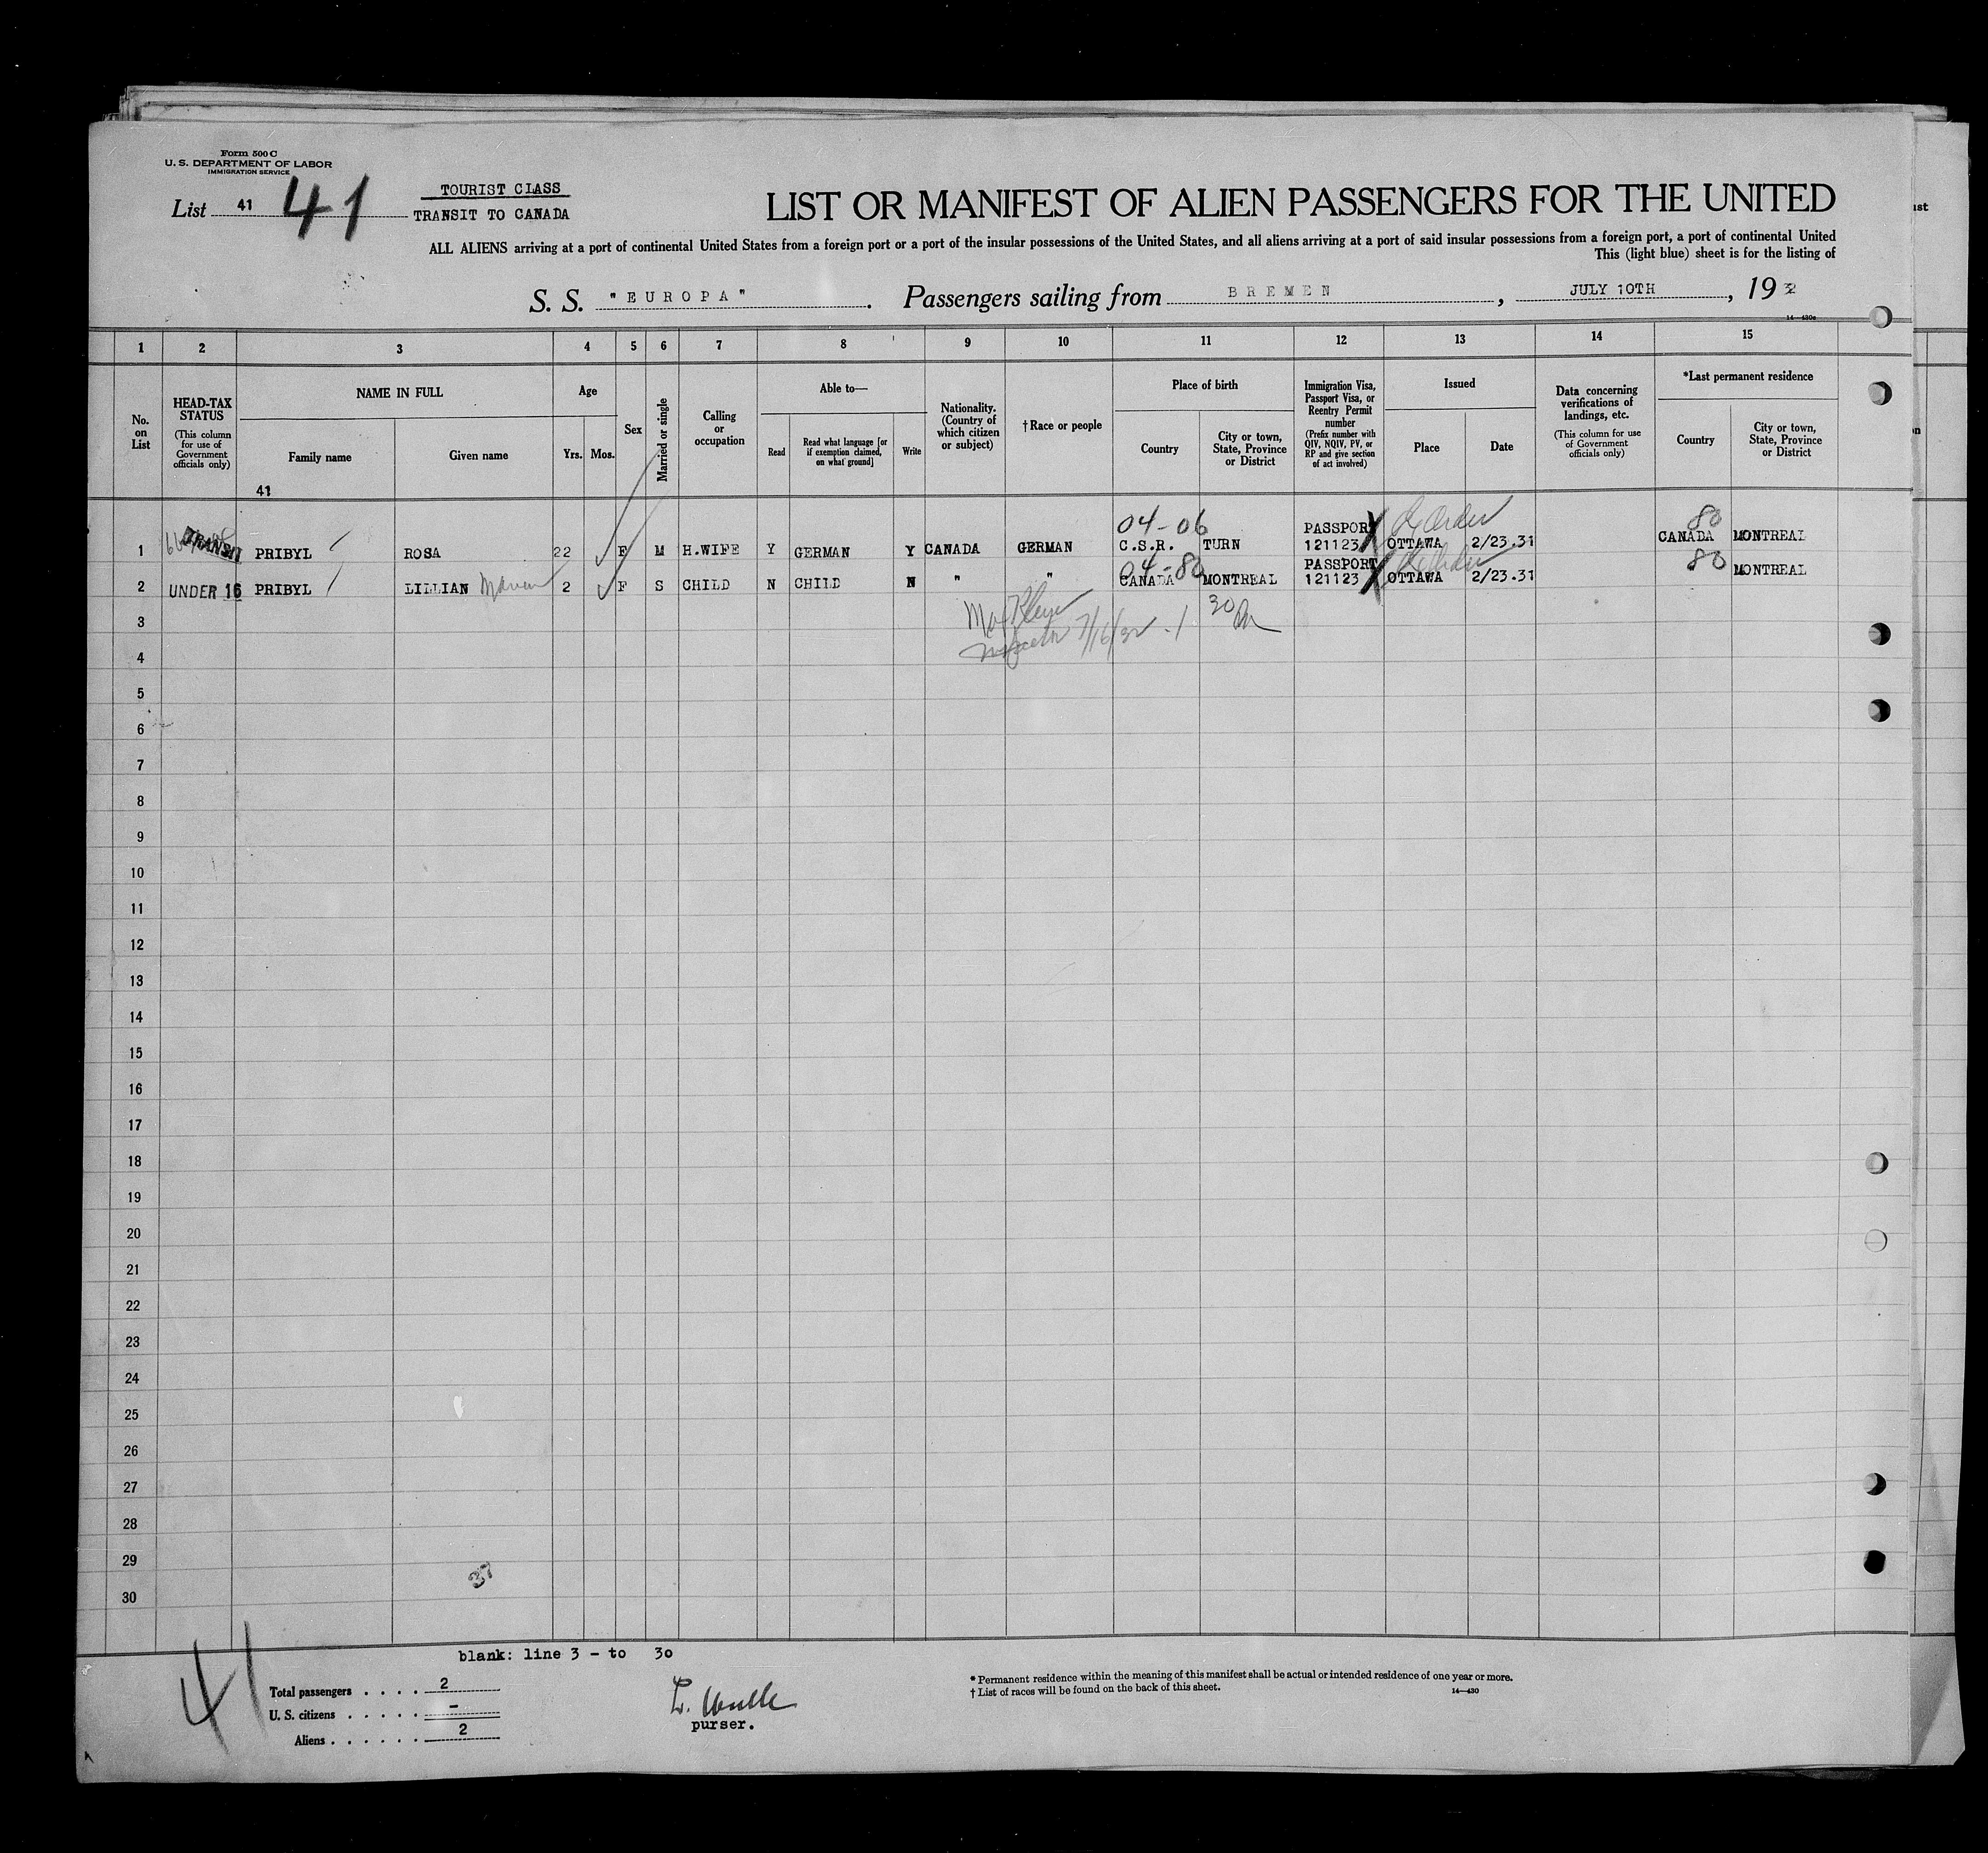 Form 500 C
U. S. DEPARTMENT OF LABOR
IMMIGRATION SERVICE
List 41 41
TOURIST CLASS
TRANSIT TO CANADA
LIST OR MANIFEST OF ALIEN PASSENGERS FOR THE UNITED
ALL ALIENS arriving at a port of continental United States from a foreign port or a port of the insular possessions of the United States, and all aliens arriving at a port of said insular possessions from a foreign port, a port of continental United
This (light blue) sheet is for the listing of
S. S. "EUROPA". Passengers sailing from BREMEN, JULY 10TH, 19 32
14—430c
1 2 3 4 5 6 7 8 9 10 11 12 13 14 15
No. on List
HEAD-TAX STATUS (This column for use of Government officials only)
NAME IN FULL
Family name
Given name
Age
Yrs.
Mos.
Sex
Married or single
Calling or occupation
Able to—
Read
Read what language [or if exemption claimed, on what ground]
Write
Nationality. (Country of which citizen or subject)
†Race or people
Place of birth
Country
City or town, State, Province or District
Immigration Visa, Passport Visa, or Reentry Permit number (Prefix number with QIV, NQIV, PV, or RP and give section of act involved)
Issued
Place
Date
Data concerning verifications of landings, etc. (This column for use of Government officials only)
*Last permanent residence
Country
City or town, State, Province or District
41
04-06 80
1 TRANSIT PRIBYL ROSA 22 F M H.WIFE Y GERMAN Y CANADA GERMAN C.S.R. TURN PASSPORT 121123 OTTAWA 2/23.31 CANADA MONTREAL
04-80 80
2 UNDER 16 PRIBYL LILLIAN 2 F S CHILD N CHILD N " " CANADA MONTREAL PASSPORT 121123 OTTAWA 2/23.31 MONTREAL
3
7/16/32
4
5
6
7
8
9
10
11
12
13
14
15
16
17
18
19
20
21
22
23
24
25
26
27
28
29
37
30
blank: line 3 - to 30
41
Total passengers . . . . 2
U. S. citizens . . . . . -
Aliens . . . . . . 2
purser.
* Permanent residence within the meaning of this manifest shall be actual or intended residence of one year or more.
† List of races will be found on the back of this sheet.
14—430